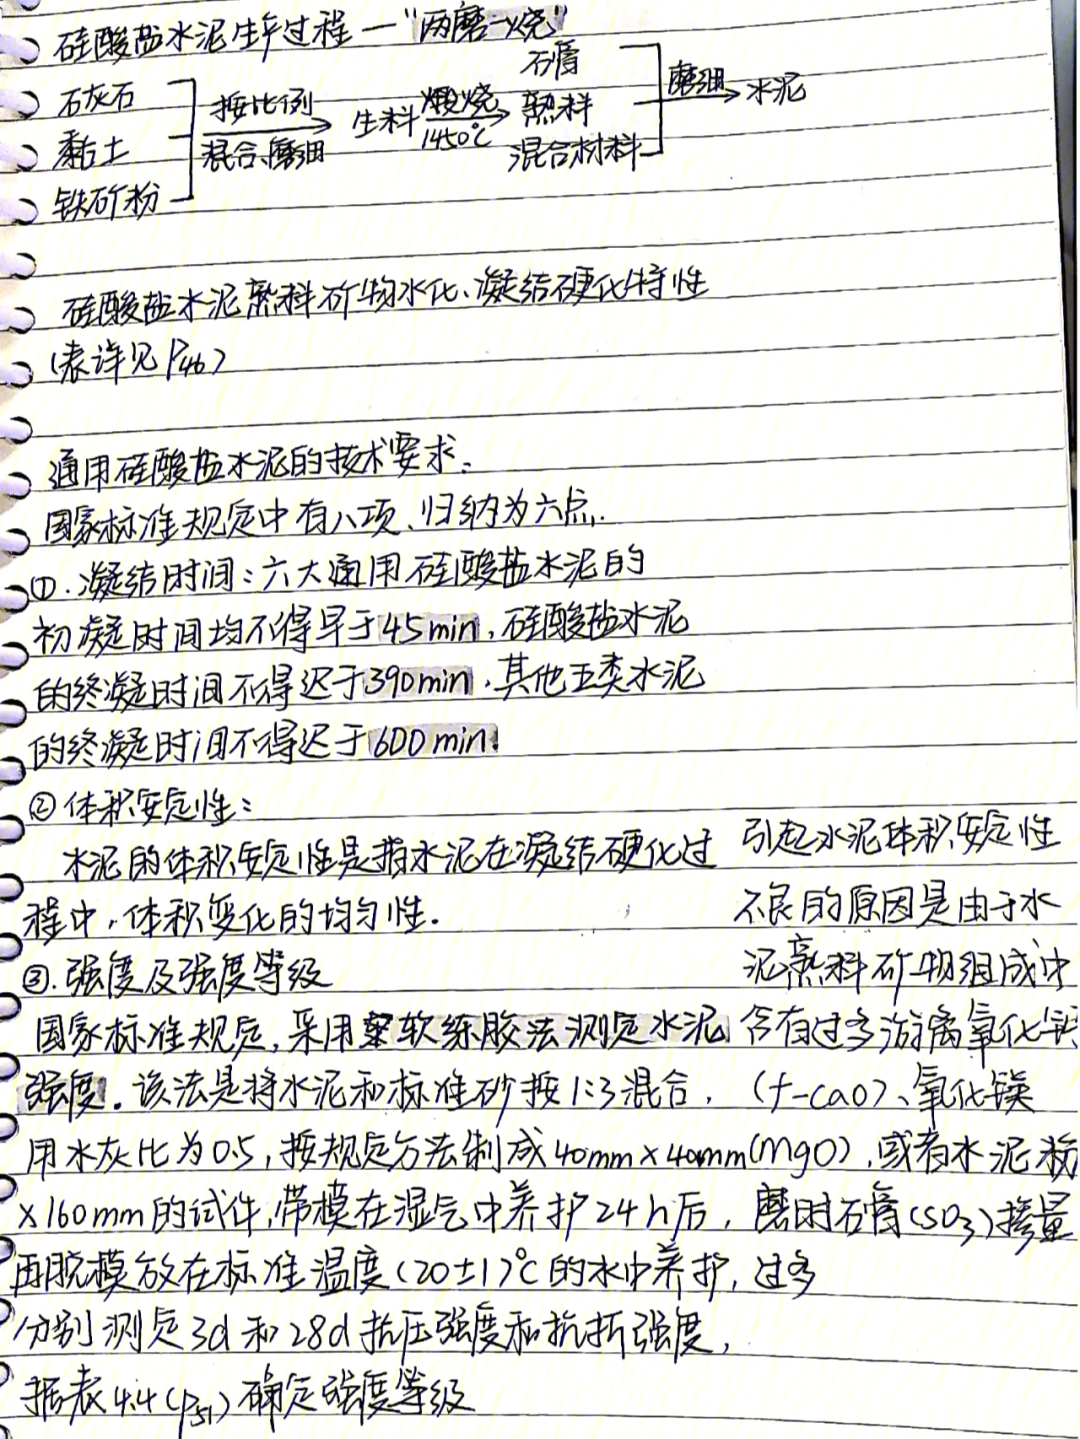 硅酸盐水泥生产过程—"两磨一烧"
石灰石
黏土
铁矿粉
按比例
混合、磨细
生料
煅烧
1450℃
石膏
熟料
混合材料
磨细
水泥
硅酸盐水泥熟料矿物水化、凝结硬化特性
(表详见P46)
通用硅酸盐水泥的技术要求。
国家标准规定中有八项、归纳为六点.
①.凝结时间:六大通用硅酸盐水泥的
初凝时间均不得早于45min,硅酸盐水泥
的终凝时间不得迟于390min,其他五类水泥
的终凝时间不得迟于600min.
②体积安定性:
水泥的体积安定性是指水泥在凝结硬化过
程中,体积变化的均匀性.
③.强度及强度等级
国家标准规定,采用软练胶法测定水泥
强度。该法是将水泥和标准砂按1:3混合,
用水灰比为0.5,按规定方法制成40mm×40mm
×160mm的试件,带模在湿气中养护24h后,
再脱模放在标准温度(20±1)℃的水中养护,
分别测定3d和28d抗压强度和抗折强度,
据表4.4(P51)确定强度等级
引起水泥体积安定性
不良的原因是由于水
泥熟料矿物组成中
含有过多游离氧化钙
(f-CaO)、氧化镁
(MgO),或者水泥粉
磨时石膏(SO3)掺量
过多